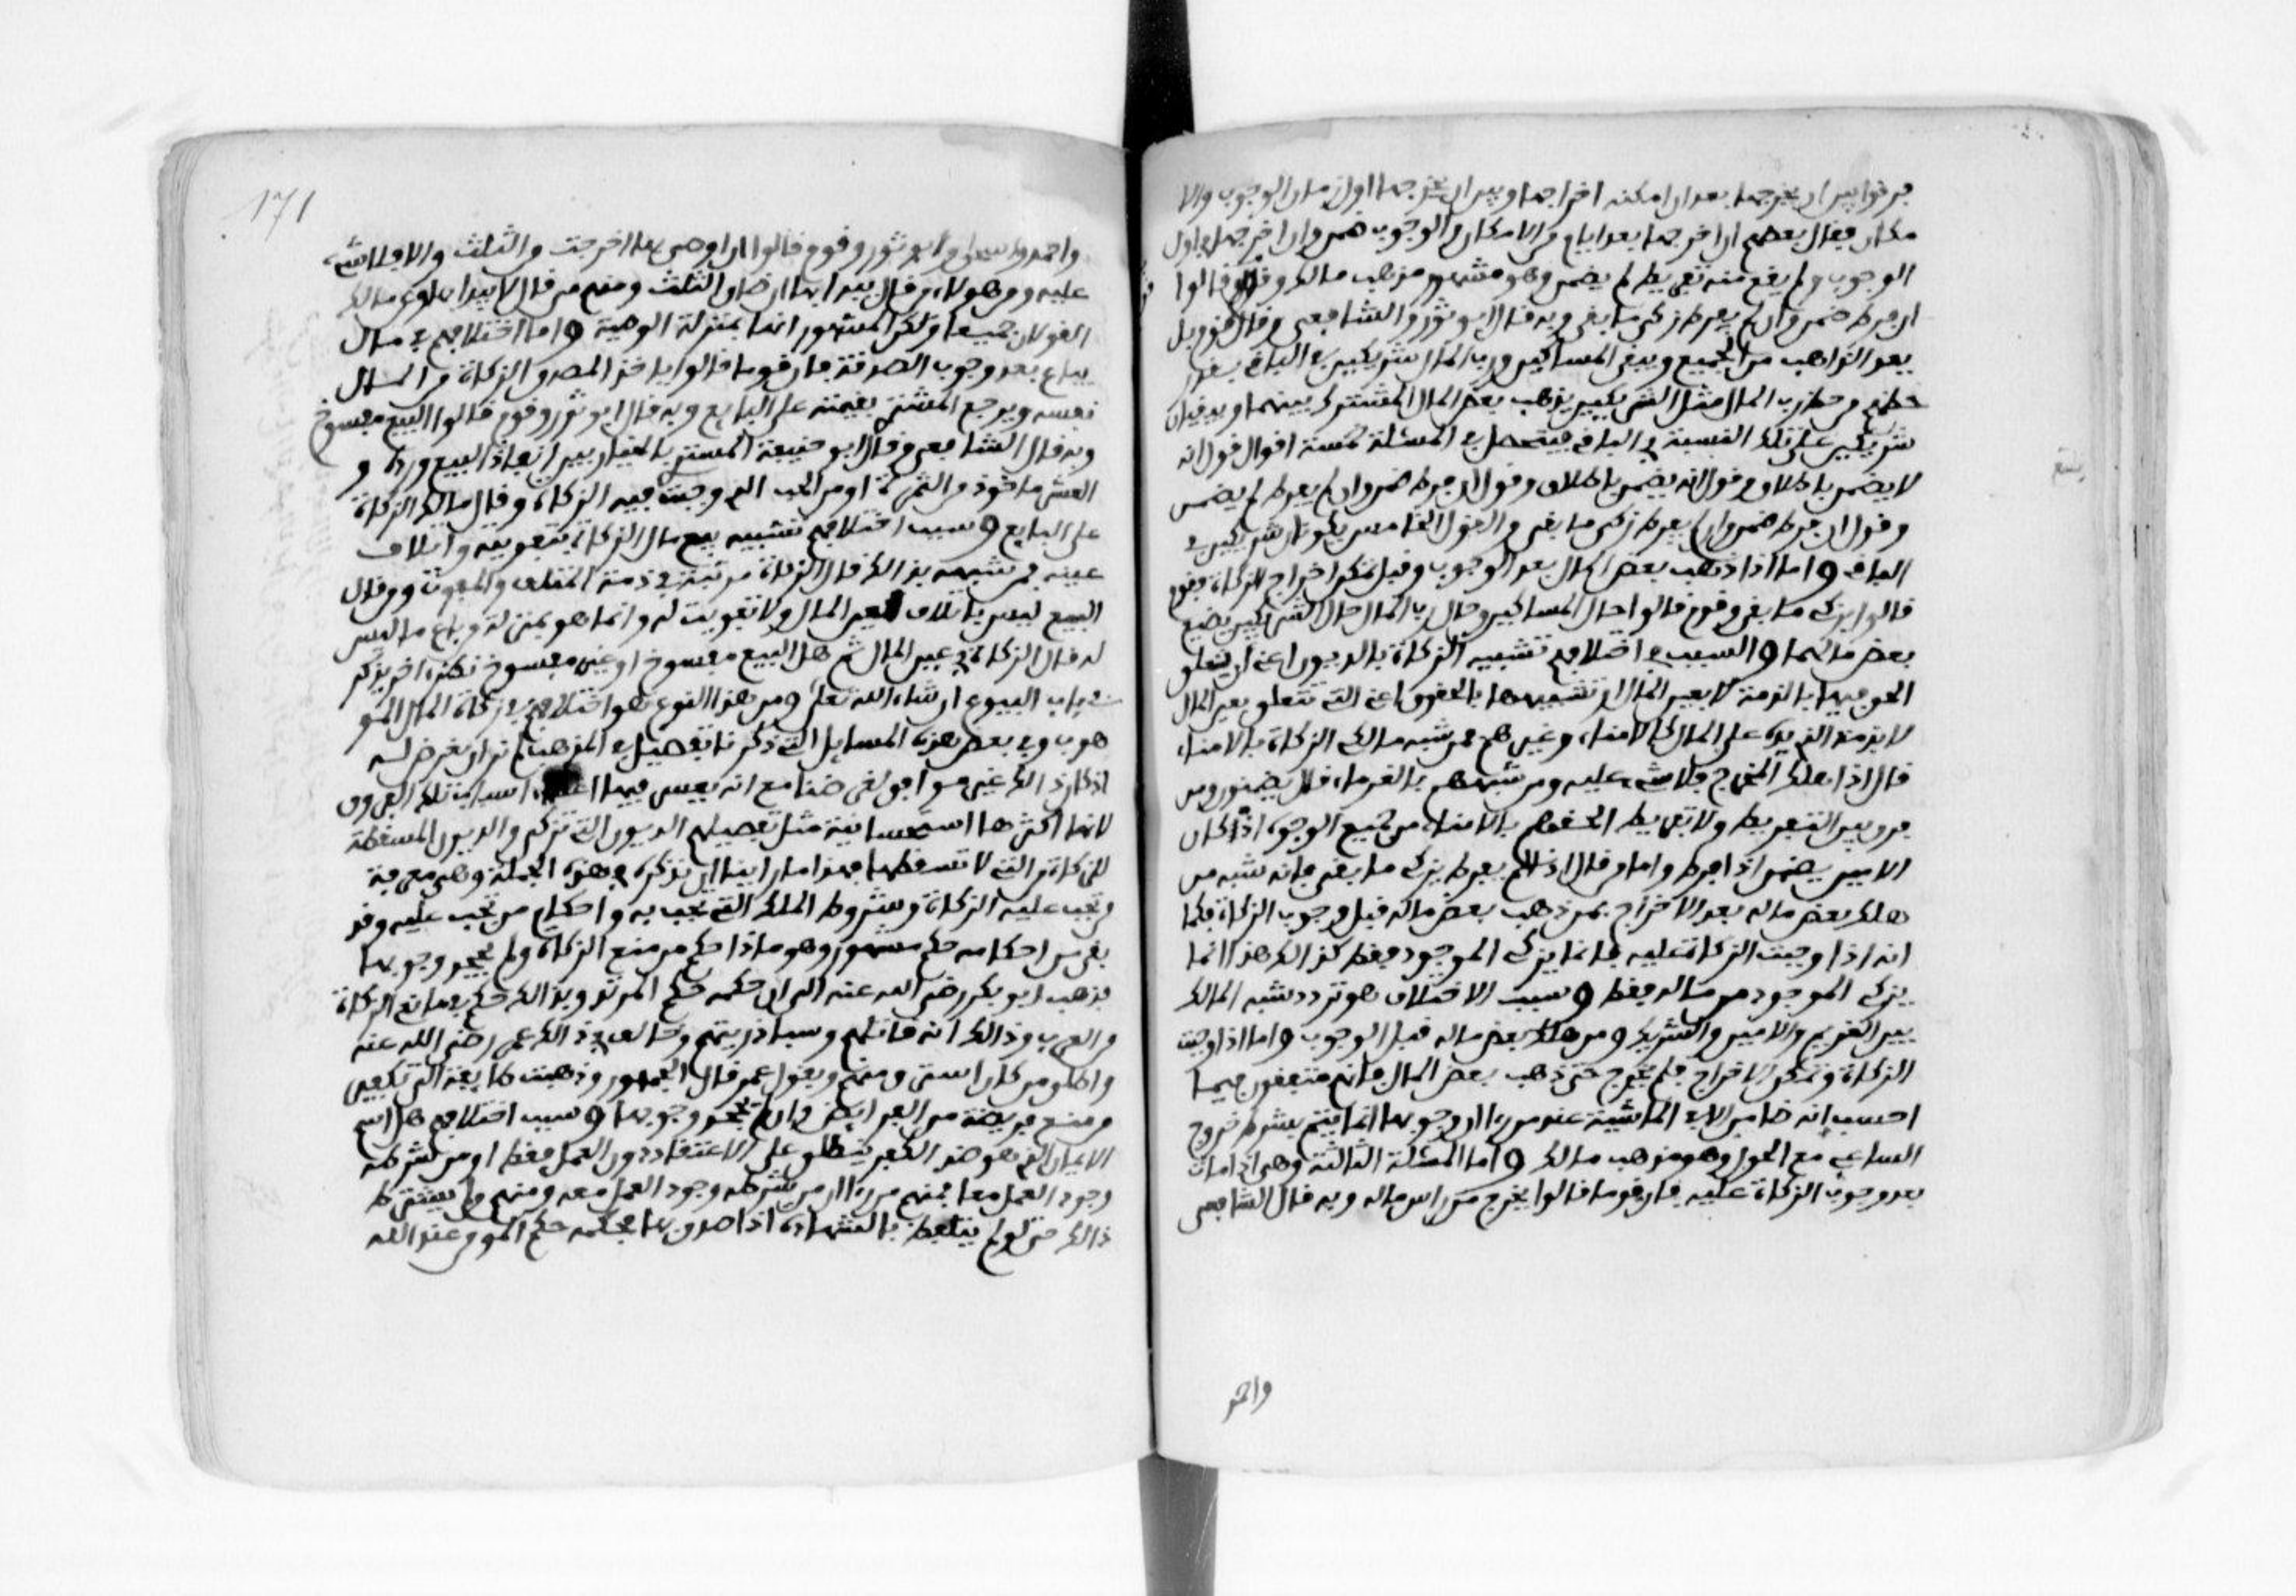 فرقوا بين ان يخرجها بعد ان امكنه اخراجها وبين ان يخرجها اول زمان الوجوب والا
مكان فقال بعضهم ان اخرجها بعد ايام من الامكان والوجوب ضمن وان اخرجها في اول
الوجوب ولم يقع منه تفريط لم يضمن وهو مشهور مذهب مالك وقوم قالوا
ان فرط ضمن وان لم يفرط زكى ما بقي وبه قال ابو ثور والشافعي وقال قوم بل
يعد الذاهب من الجميع ويبقى المساكين ورب المال شريكين في الباقي بقدر
حظهم من حظ رب المال مثل الشريكين يذهب بعض المال المشترك بينهما ويبقيان
شريكين على تلك النسبة في الباقي فيتحصل في المسئلة خمسة اقوال قول انه
لا يضمن باطلاق وقول انه يضمن باطلاق وقول ان فرط ضمن وان لم يفرط لم يضمن
وقول ان فرط ضمن وان لم يفرط زكى ما بقي والقول الخامس يكونان شريكين في
الباقي واما اذا ذهب بعض المال بعد الوجوب وقبل تمكن اخراج الزكاة فقوم
قالوا يزكي ما بقي وقوم قالوا حال المساكين وحال رب المال حال الشريكين يضيع
بعض مالهما والسبب في اختلافهم تشبيه الزكاة بالديون اعني ان يتعلق
الحق فيها بالذمة لا بعين المال او تشبيهها بالحقوق اعني التي تتعلق بعين المال
لا بذمة الذي يده على المال كالامناء وغيرهم فمن شبه مالكي الزكاة بالامناء
قال اذا هلك المخرج فلا شيء عليه ومن شبههم بالغرماء قال يضمنون ومن
فرق بين التفريط ولا تفريط الحقهم بالامناء من جميع الوجوه اذ كان
الامين يضمن اذا فرط واما من قال اذا لم يفرط يزكي ما بقي فانه شبه من
هلك بعض ماله بعد الاخراج بمن ذهب بعض ماله قبل وجوب الزكاة فكما
انه اذا وجبت الزكاة عليه فانما يزكي الموجود فقط كذالك هذا انما
يزكي الموجود من ماله فقط وسبب الاختلاف هو تردد شبه المالك
بين الغريم والامين والشريك ومن هلك بعض ماله قبل الوجوب واما اذا وجبت
الزكاة وتمكن الاخراج فلم يخرج حتى ذهب بعض المال فانهم متفقون فيما
احسب انه ضامن الا في الماشية عند من راا ان وجوبها انما يتم بشرط خروج
الساعي مع الحول وهو مذهب مالك واما المسئلة الثالثة وهي اذا مات
بعد وجوب الزكاة عليه فان قوما قالوا يخرج من راس ماله وبه قال الشافعي
واحمد
171
واحمد واسحاق وابو ثور وقوم قالوا ان اوصى بها اخرجت من الثلث والا فلا شيء
عليه ومن هولاء من قال يبدا بها ان ضاق الثلث ومنهم من قال لا يبدا بها وعن مالك
القولان جميعا ولكن المشهور انها بمنزلة الوصية واما اختلافهم في مال
يباع بعد وجوب الصدقة فان قوما قالوا ياخذ المصدق الزكاة من المال
نفسه ويرجع المشتري بقيمته على البايع وبه قال ابو ثور وقوم قالوا البيع مفسوخ
وبه قال الشافعي وقال ابو حنيفة المشتري بالخيار بين انفاذ البيع ورده و
العشر ماخوذ من الثمرة او من الحب الذي وجبت فيه الزكاة وقال مالك الزكاة
على البايع وسبب اختلافهم تشبيه بيع مال الزكاة بتفويته واتلاف
عينه فمن شبهه بذالك قال الزكاة مرتبة في ذمة المتلف والمفوت ومن قال
البيع ليس باتلاف لعين المال ولا تفويت له وانما هو بمنزلة من باع ما ليس
له قال الزكاة في عين المال ثم هل البيع مفسوخ او غير مفسوخ نظر اخر يذكر
في باب البيوع ان شاء الله تعلى ومن هذا النوع هو اختلافهم في زكاة المال المو
هوب وفي بعض هذه المسايل التي ذكرنا تفصيل في المذهب لم نر ان نعرض له
اذ كان ذالك غير موافق لغرضنا مع انه يعسر فيها اعطاء اسباب تلك الفروق
لانها اكثرها استحسانية مثل تفصيلهم الديون التي تزكى والديون المسقطة
للزكاة والتي لا تسقطها فهذا ما راينا ان نذكره في هذه الجملة وهي معرفة
من تجب عليه الزكاة وشروط الملك التي تجب به واحكام من تجب عليه وقد
بقي من احكامه حكم مشهور وهو ماذا حكم من منع الزكاة ولم يجحد وجوبها
فذهب ابو بكر رضي الله عنه الى ان حكمه حكم المرتد وبذالك حكم في مانعي الزكاة
من العرب وذالك انه قاتلهم وسبا ذريتهم وخالفه في ذالك عمر رضي الله عنه
واطلق من كان استرق منهم وبقول عمر قال الجمهور وذهبت طايفة الى تكفير
من منع فريضة من الفرايض وان لم يجحد وجوبها وسبب اختلافهم هل اسم
الايمان الذي هو ضد الكفر ينطلق على الاعتقاد دون العمل فقط او من شرطه
وجود العمل معه فمنهم من راا ان من شرطه وجود العمل معه ومنهم من لم يشترط
ذالك حتى لو لم يتلفظ بالشهادة اذا صدق بها فحكمه حكم المومن عند الله